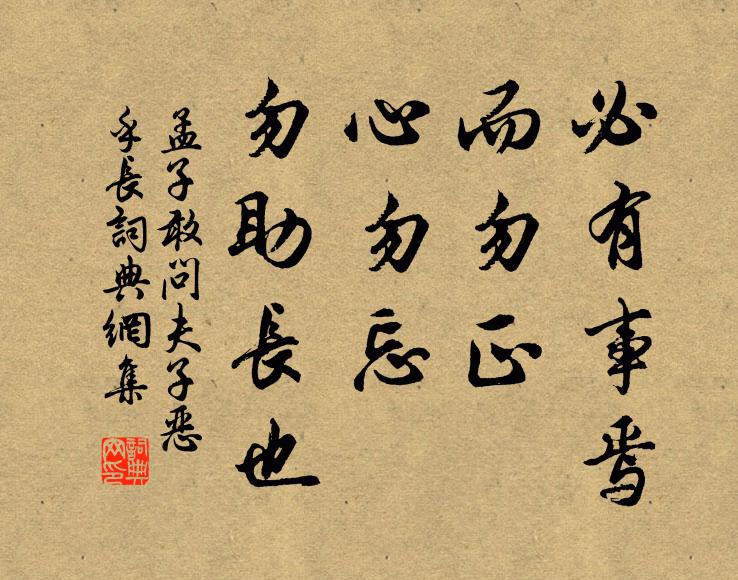 必有事焉
而勿正
心勿忘
勿助長也
孟子敢問夫子惡
乎長詞典網集
詞典
网印